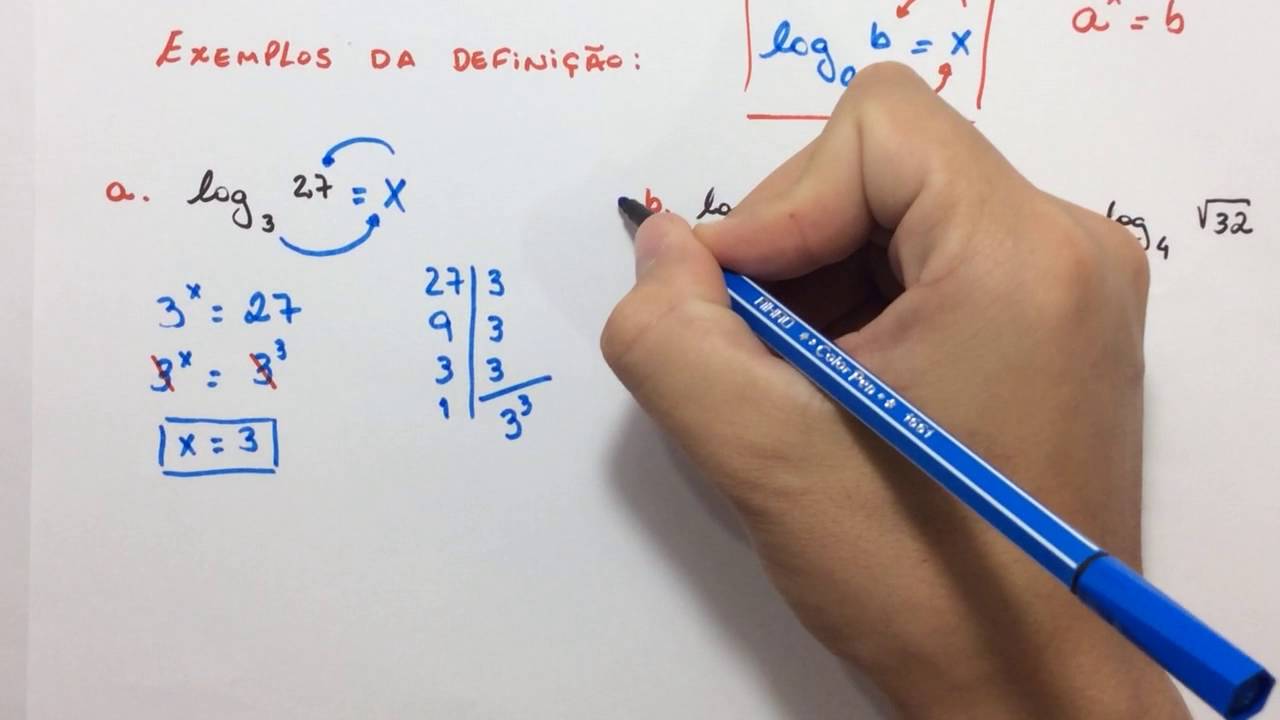 EXEMPLOS DA DEFINIÇÃO:
log b = x
aˣ = b
a. log₃ 27 = x
3ˣ = 27
3ˣ = 3³
x = 3
27 | 3
9 | 3
3 | 3
1 | 3³
b. lo
log₄ √32
Color Pen 1661